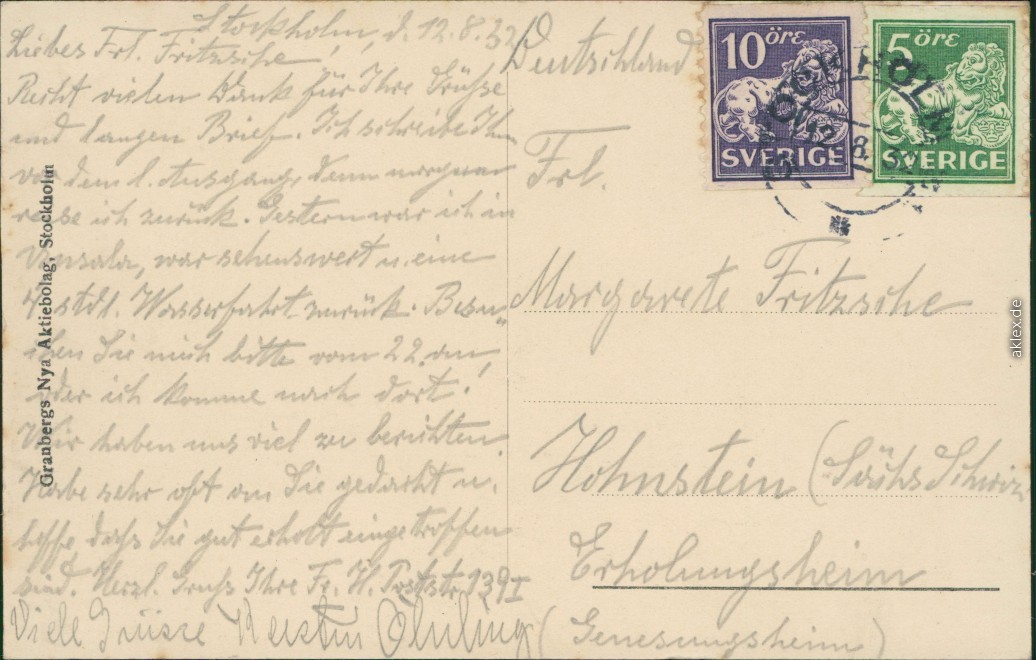 Stockholm, d. 12.8.32
Liebes Frl. Fritzsche
Recht vielen Dank für Ihre Grüsse
und langen Brief. Ich schreibe Ihnen
vor dem l. Ausgang, denn morgen
reise ich zurück. Gestern war ich in
Upsala, war sehenswert u. eine
7 stdl. Wasserfahrt zurück. Besu-
chen Sie mich bitte vom 22. an,
oder ich komme nach dort.
Wir haben uns viel zu berichten.
Habe sehr oft an Sie gedacht u.
hoffe, dass Sie gut erholt eingetroffen
sind. Herzl. Gruss Ihre Fr. H. Poststr. 139 I
Viele Grüsse Kerstin
Granbergs Nya Aktiebolag, Stockholm
Deutschland
10 öre
SVERIGE
5 öre
SVERIGE
Frl.
Margarete Fritzsche
Hohnstein (Sächs Schweiz
Erholungsheim
(Genesungsheim)
aklex.de